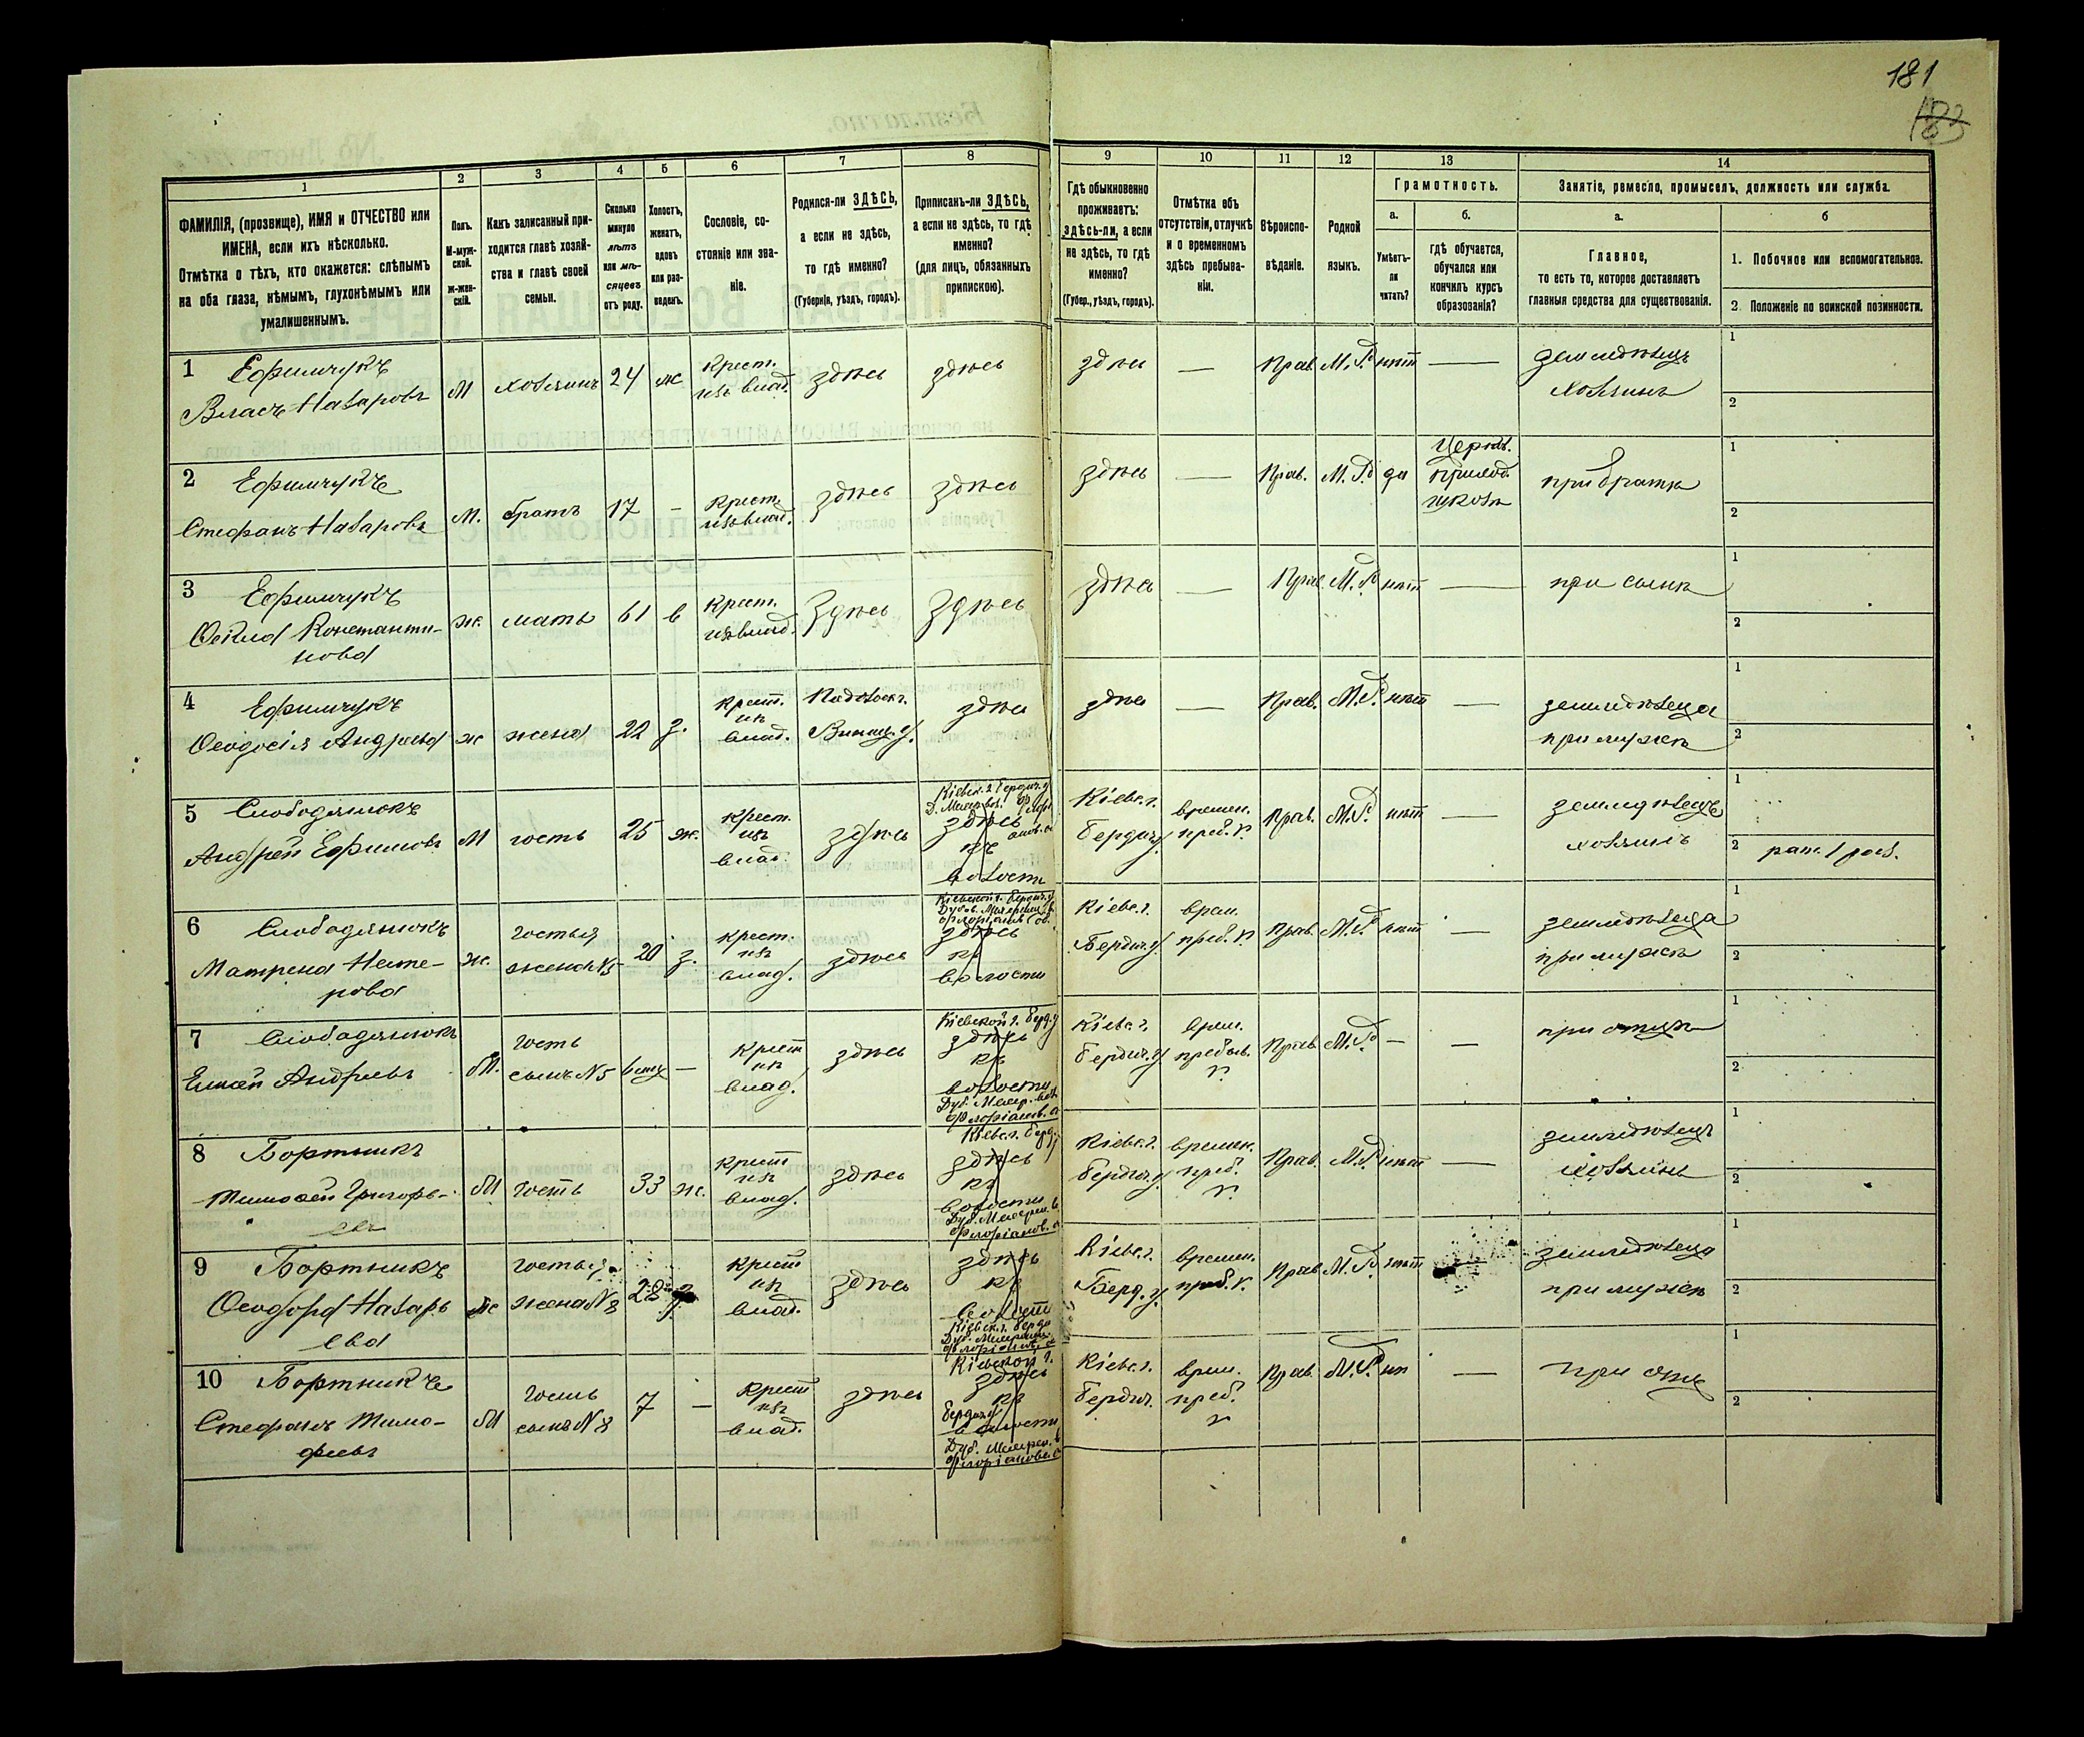 181
183
1
2
3
4
5
6
7
8
9
10
11
12
13
14
ФАМИЛІЯ, (прозвище), ИМЯ и ОТЧЕСТВО или
ИМЕНА, если ихъ нѣсколько.
Отмѣтка о тѣхъ, кто окажется: слѣпымъ
на оба глаза, нѣмымъ, глухонѣмымъ или
умалишеннымъ.
Полъ.
М-муж-
ской.
Ж-жен-
скій.
Какъ записанный при-
ходится главѣ хозяй-
ства и главѣ своей
семьи.
Сколько
минуло
лѣтъ
или мѣ-
сяцевъ
отъ роду.
Холостъ,
женатъ,
вдовъ
или раз-
веденъ.
Сословіе, со-
стояніе или зва-
ніе.
Родился-ли ЗДѢСЬ,
а если не здѣсь,
то гдѣ именно?
(Губернія, уѣздъ, городъ).
Приписанъ-ли ЗДѢСЬ,
а если не здѣсь, то гдѣ
именно?
(для лицъ, обязанныхъ
припискою).
Гдѣ обыкновенно
проживаетъ:
здѣсь-ли, а если
не здѣсь, то гдѣ
именно?
(Губер., уѣздъ, городъ).
Отмѣтка объ
отсутствіи, отлучкѣ
и о временномъ
здѣсь пребыва-
ніи.
Вѣроиспо-
вѣданіе.
Родной
языкъ.
Грамотность.
а.
б.
Умѣетъ-
ли
читать?
гдѣ обучается,
обучался или
кончилъ курсъ
образованія?
Занятіе, ремесло, промыселъ, должность или служба.
а.
б
Главное,
то есть то, которое доставляетъ
главныя средства для существованія.
1. Побочное или вспомогательное.
2 Положеніе по воинской повинности.
1 Ефимчукъ
Власъ Назаровъ
М хозяинъ 24 ж
Крест.
изъ влад.
здѣсь здѣсь здѣсь — Прав. М.Р. нѣтъ —
земледѣлецъ
хозяинъ
1
2
2 Ефимчукъ
Стефанъ Назаровъ
М. братъ 17 -
Крест.
изъ влад.
здѣсь здѣсь здѣсь — Прав. М.Р. да
Церков.
приход.
школѣ
при братѣ
1
2
3 Ефимчукъ
Константи-
нова
ж. мать 61 в
Крест.
изъ влад.
здѣсь здѣсь здѣсь — Прав. М.Р. нѣтъ —
при сынѣ
1
2
4 Ефимчукъ
Ѳеодосія Андреева
ж жена 22 з.
Крест.
изъ
влад.
Подольск.
Винниц. у.
здѣсь здѣсь — Прав. М.Р. нѣтъ —
земледѣлица
при мужѣ
1
2
5 Слободянюкъ
Андрей Ефимовъ
М гость 25 ж.
Крест.
изъ
влад.
здѣсь
Кіевск. г. Бердич. у
здѣсь
къ
волости
Кіевс. г.
Бердич. у.
времен.
преб.
Прав. М.Р. нѣтъ —
земледѣлецъ
хозяинъ
1
2 рат. 1 раз.
6 Слободянюкъ
Матрена Несте-
рова
ж.
гостья
жена №5
20 з.
крест.
изъ
влад.
здѣсь
Кіевской г. Бердич. у
здѣсь
къ
волости
Кіевс. г.
Бердич. у
врем.
преб.
Прав. М.Р. нѣтъ —
земледѣлица
при мужѣ
1
2
7 Слободянюкъ
Андреевъ
М.
гость
сынъ №5
—
крест
изъ
влад.
здѣсь
Кіевской г. Берд. у
здѣсь
къ
волости
Кіевс. г.
Бердич. у
врем.
пребыв.
Прав. М.Р. — —
при отцѣ
1
2
8 Бортникъ
Тимоѳей Григорь-
евъ
М гость 33 ж.
крест
изъ
влад.
здѣсь
Кіевс. г. Берд. у
здѣсь
къ
волости
Кіевс. г.
Бердич. у.
времен.
преб.
Прав. М.Р. нѣтъ —
земледѣлецъ
хозяинъ
1
2
9 Бортникъ
Ѳеодора Назарь
ева
ж
гостья
жена №8
28 з.
крест
изъ
влад.
здѣсь
здѣсь
къ
волости
Кіевс. г.
Берд. у.
времен.
преб.
Прав. М.Р. нѣтъ
земледѣлица
при мужѣ
1
2
10 Бортникъ
Стефанъ Тимо-
феевъ
М
гость
сынъ №8
7 —
крест
изъ
влад.
здѣсь
Кіевской г.
здѣсь
къ
Бердич. у
волости
Кіевс. г.
Бердич.
врем.
преб.
Прав. М.Р. —
при отцѣ
1
2